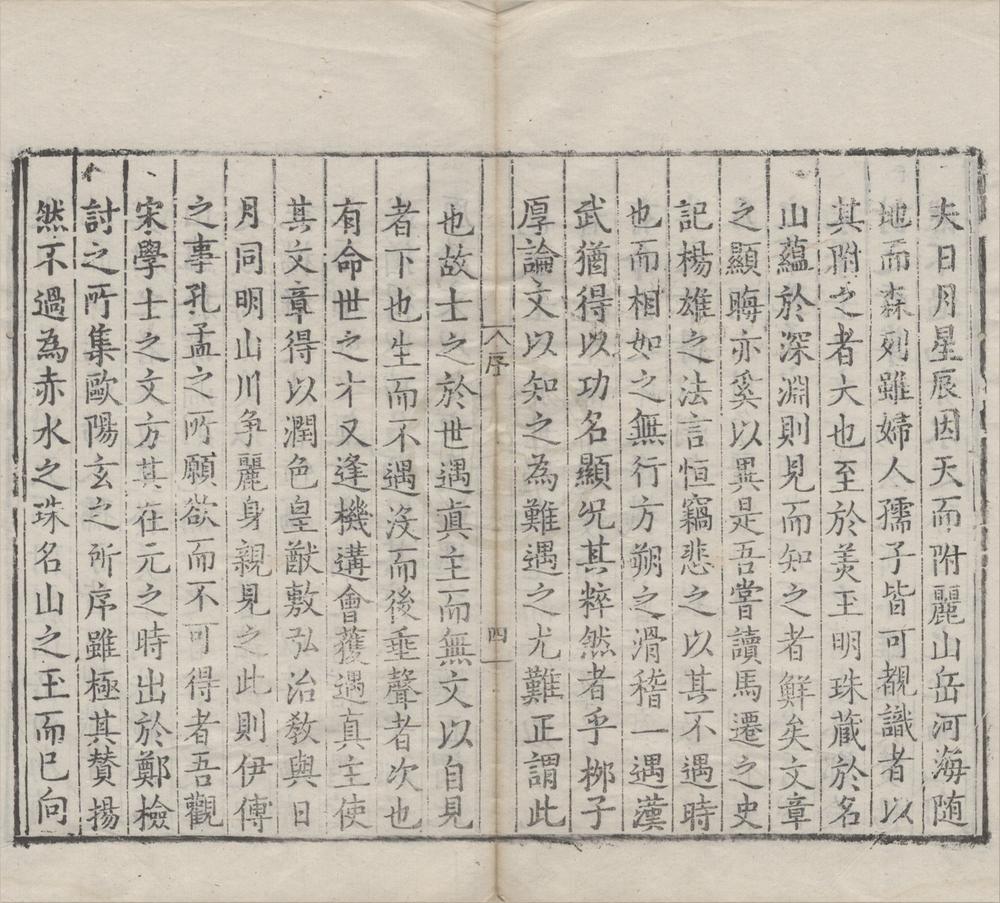 夫日月星辰因天而附麗山岳河海随
地而森列雖婦人孺子皆可覩識者以
其附之者大也至於羙玉明珠蔵於名
山蘊於深淵則見而知之者鮮矣文章
之顯晦亦奚以異是吾嘗讀馬遷之史
記楊雄之法言恒竊悲之以其不遇時
也而相如之無行方朔之滑稽一遇漢
武猶得以功名顯况其粹然者乎栁子
厚論文以知之為難遇之尤難正謂此
序
四
也故士之於世遇真主而無文以自見
者下也生而不遇沒而後垂聲者次也
有命世之才又逢機遘會獲遇真主使
其文章得以潤色皇猷敷弘治教與日
月同明山川争麗身親見之此則伊傅
之事孔孟之所願欲而不可得者吾觀
宋學士之文方其在元之時出於鄭檢
討之所集歐陽玄之所序雖極其賛揚
然不過為赤水之珠名山之玉而已向